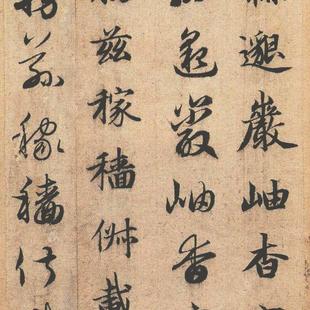 邈巖岫杳
邈巖岫杳
務茲稼穡俶載
務茲稼穡俶